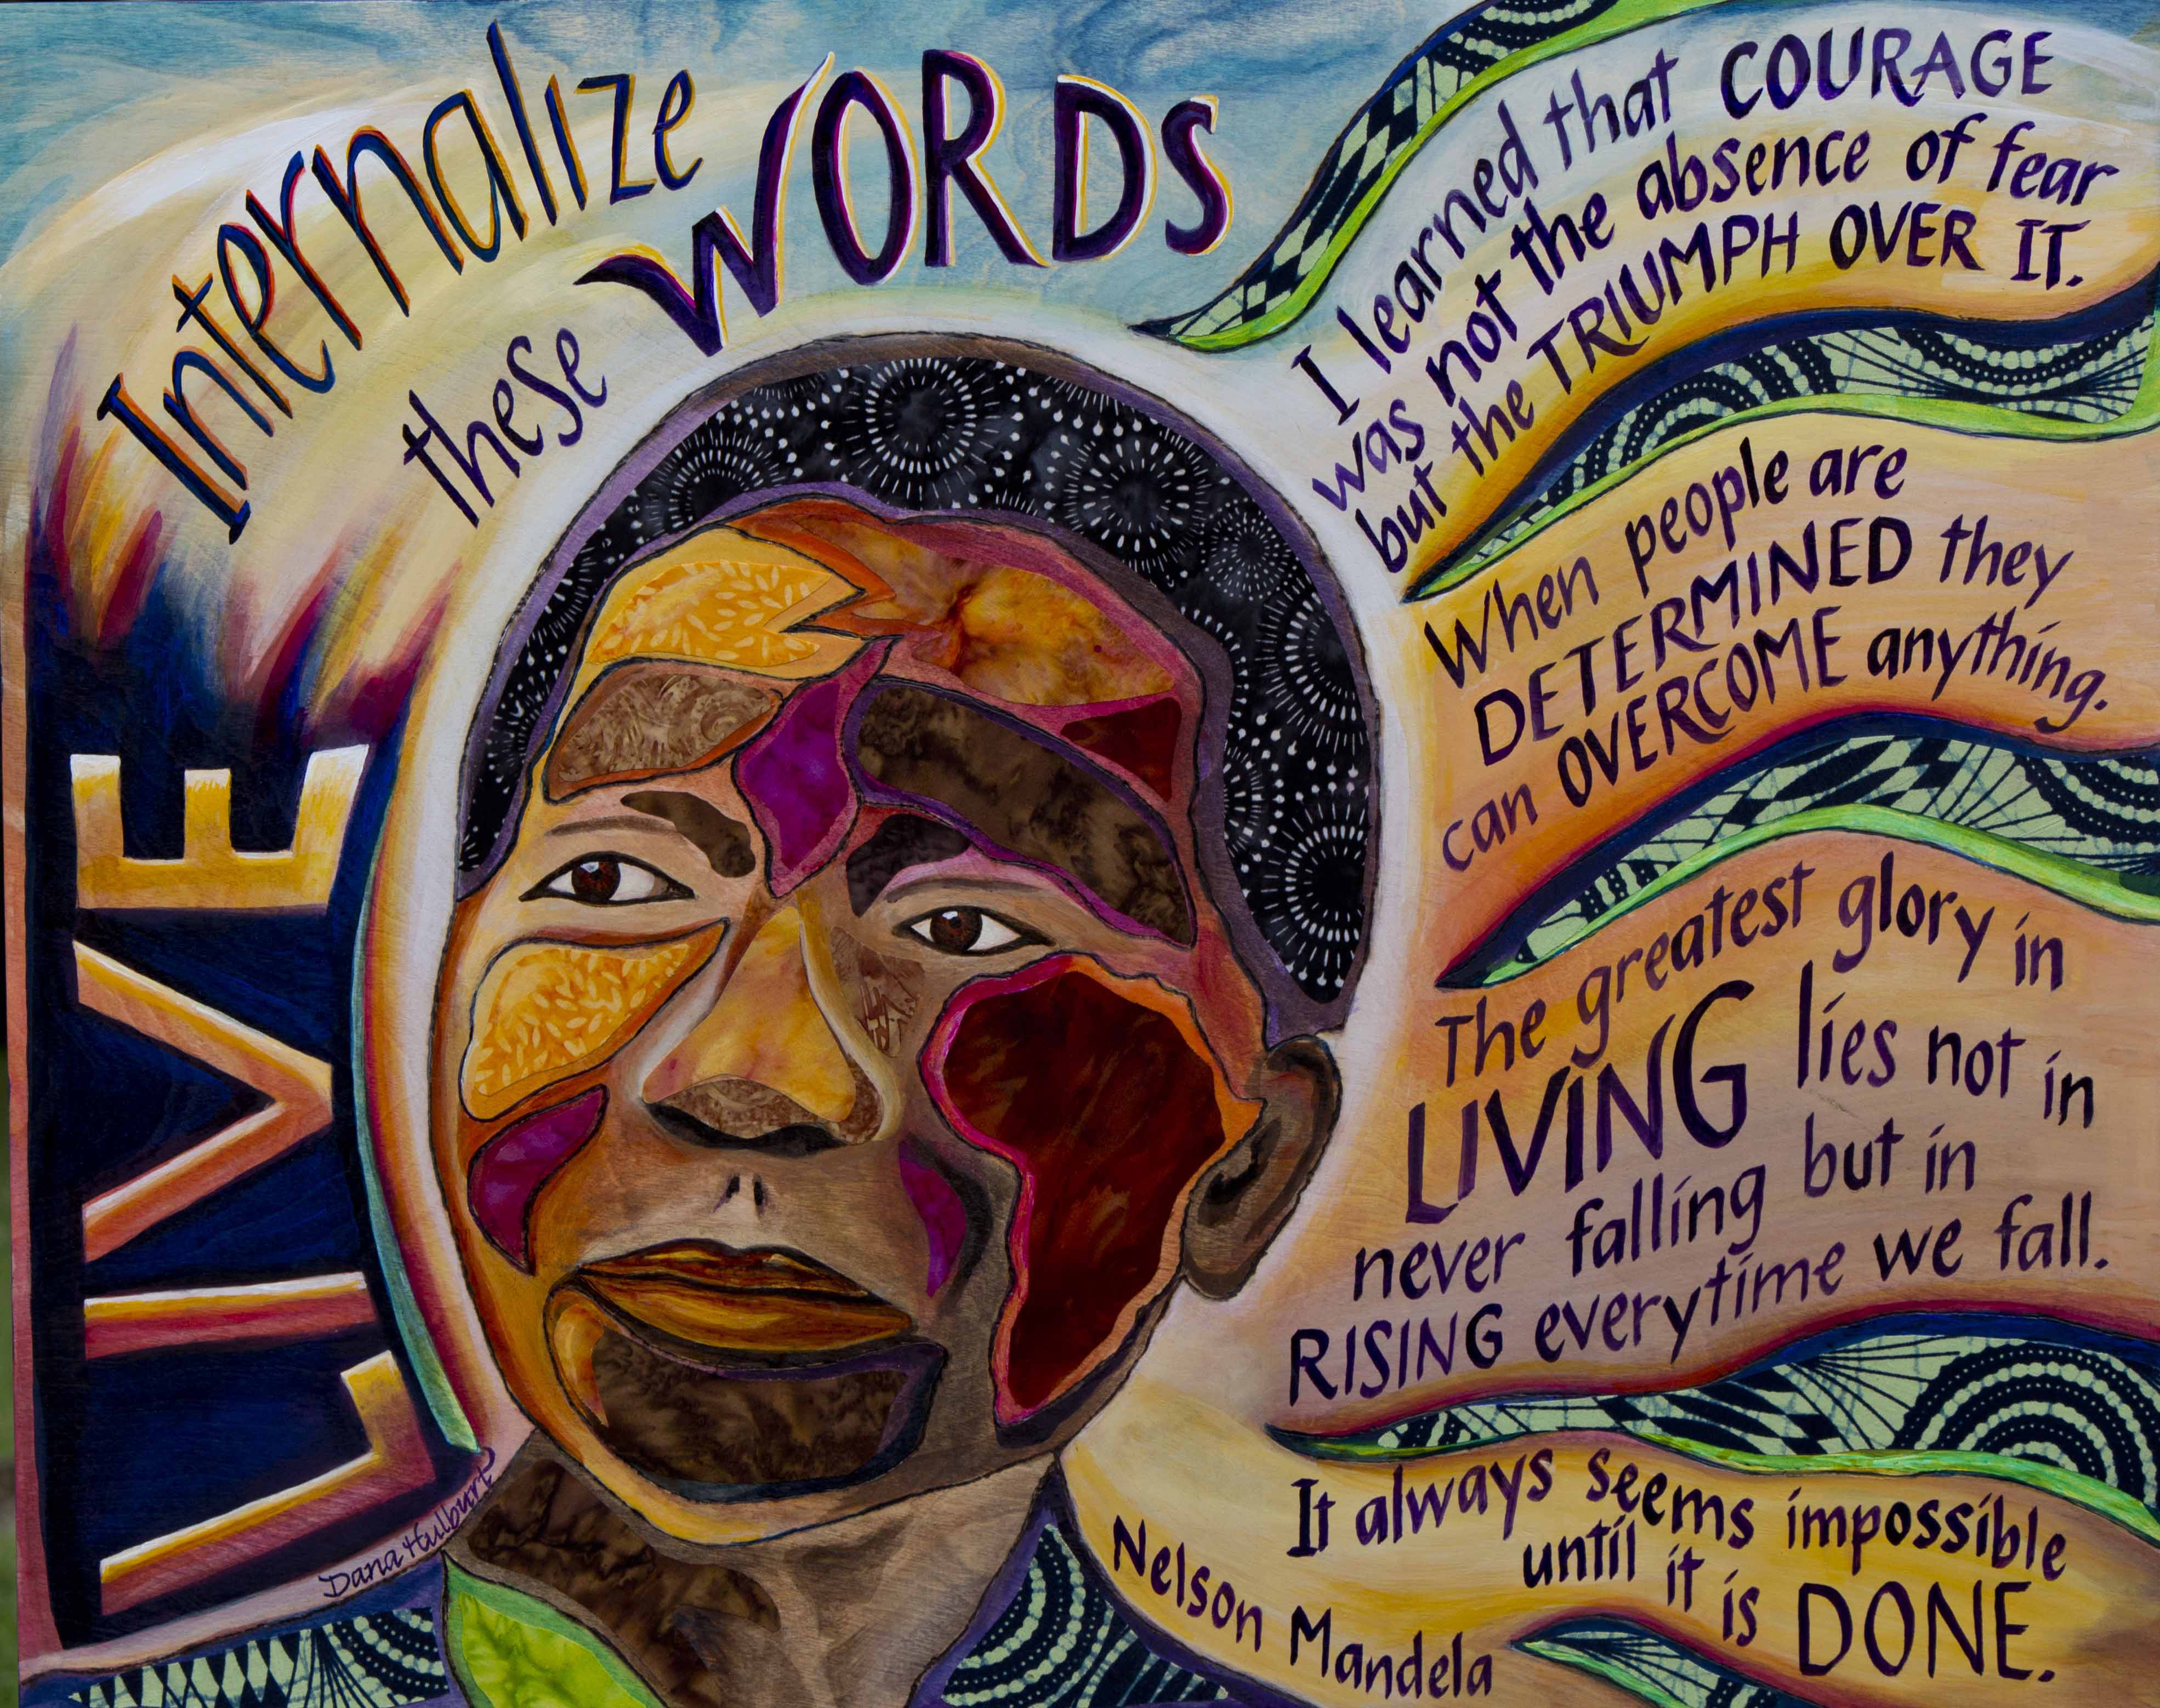 Internalize
these WORDS
LIVE
I learned that COURAGE
was not the absence of fear
but the TRIUMPH OVER IT.
When people are
DETERMINED they
can OVERCOME anything.
The greatest glory in
LIVING lies not in
never falling but in
RISING everytime we fall.
It always seems impossible
until it is DONE.
Nelson Mandela
Dana Hulburt